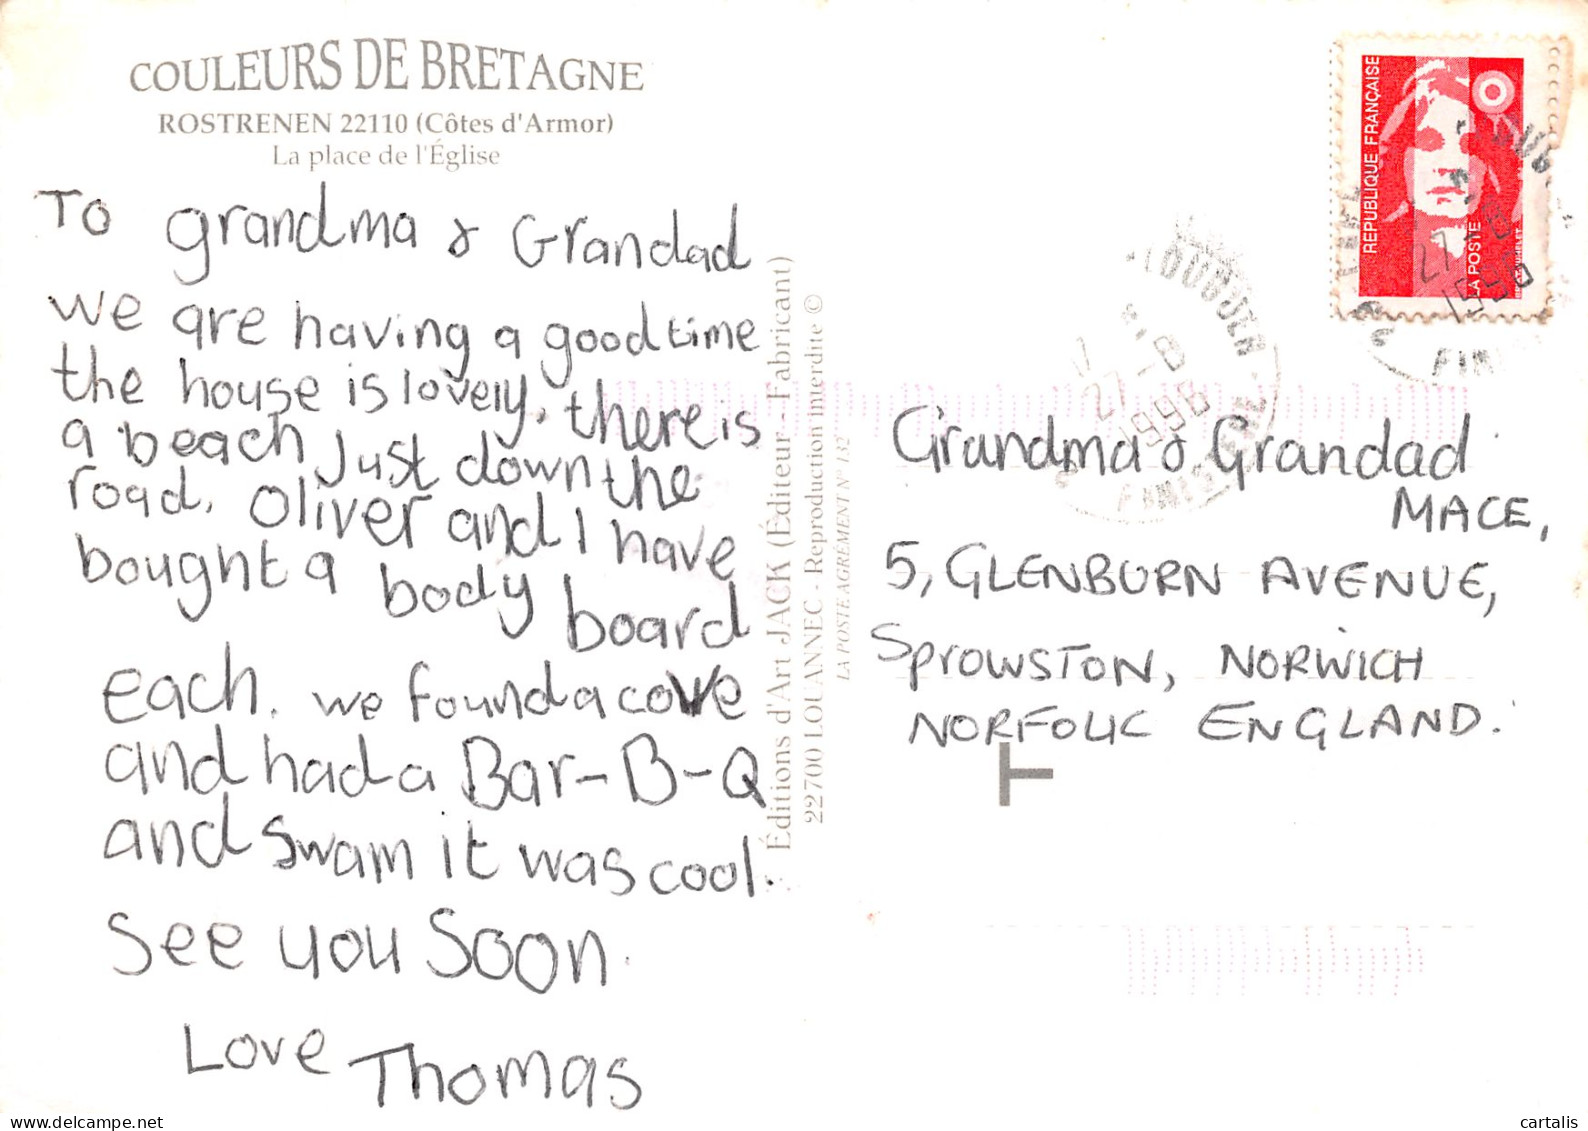 COULEURS DE BRETAGNE
ROSTRENEN 22110 (Côtes d'Armor)
La place de l'Église
To grandma & Grandad
we are having a good time
the house is lovely, there is
a beach just down the
road. Oliver and I have
bought a body board
each. we found a cove
and had a Bar-B-Q
and swam it was cool.
See you Soon
Love Thomas
Éditions d'Art JACK (Éditeur - Fabricant)
22700 LOUANNEC - Reproduction interdite ©
LA POSTE AGRÉMENT N° 132
RÉPUBLIQUE FRANÇAISE
LA POSTE
27 - 8
1996
FINISTERE
27 - 8
1996
Grandma & Grandad
MACE,
5, GLENBURN AVENUE,
SPROWSTON, NORWICH
NORFOLK ENGLAND.
T
cartalis